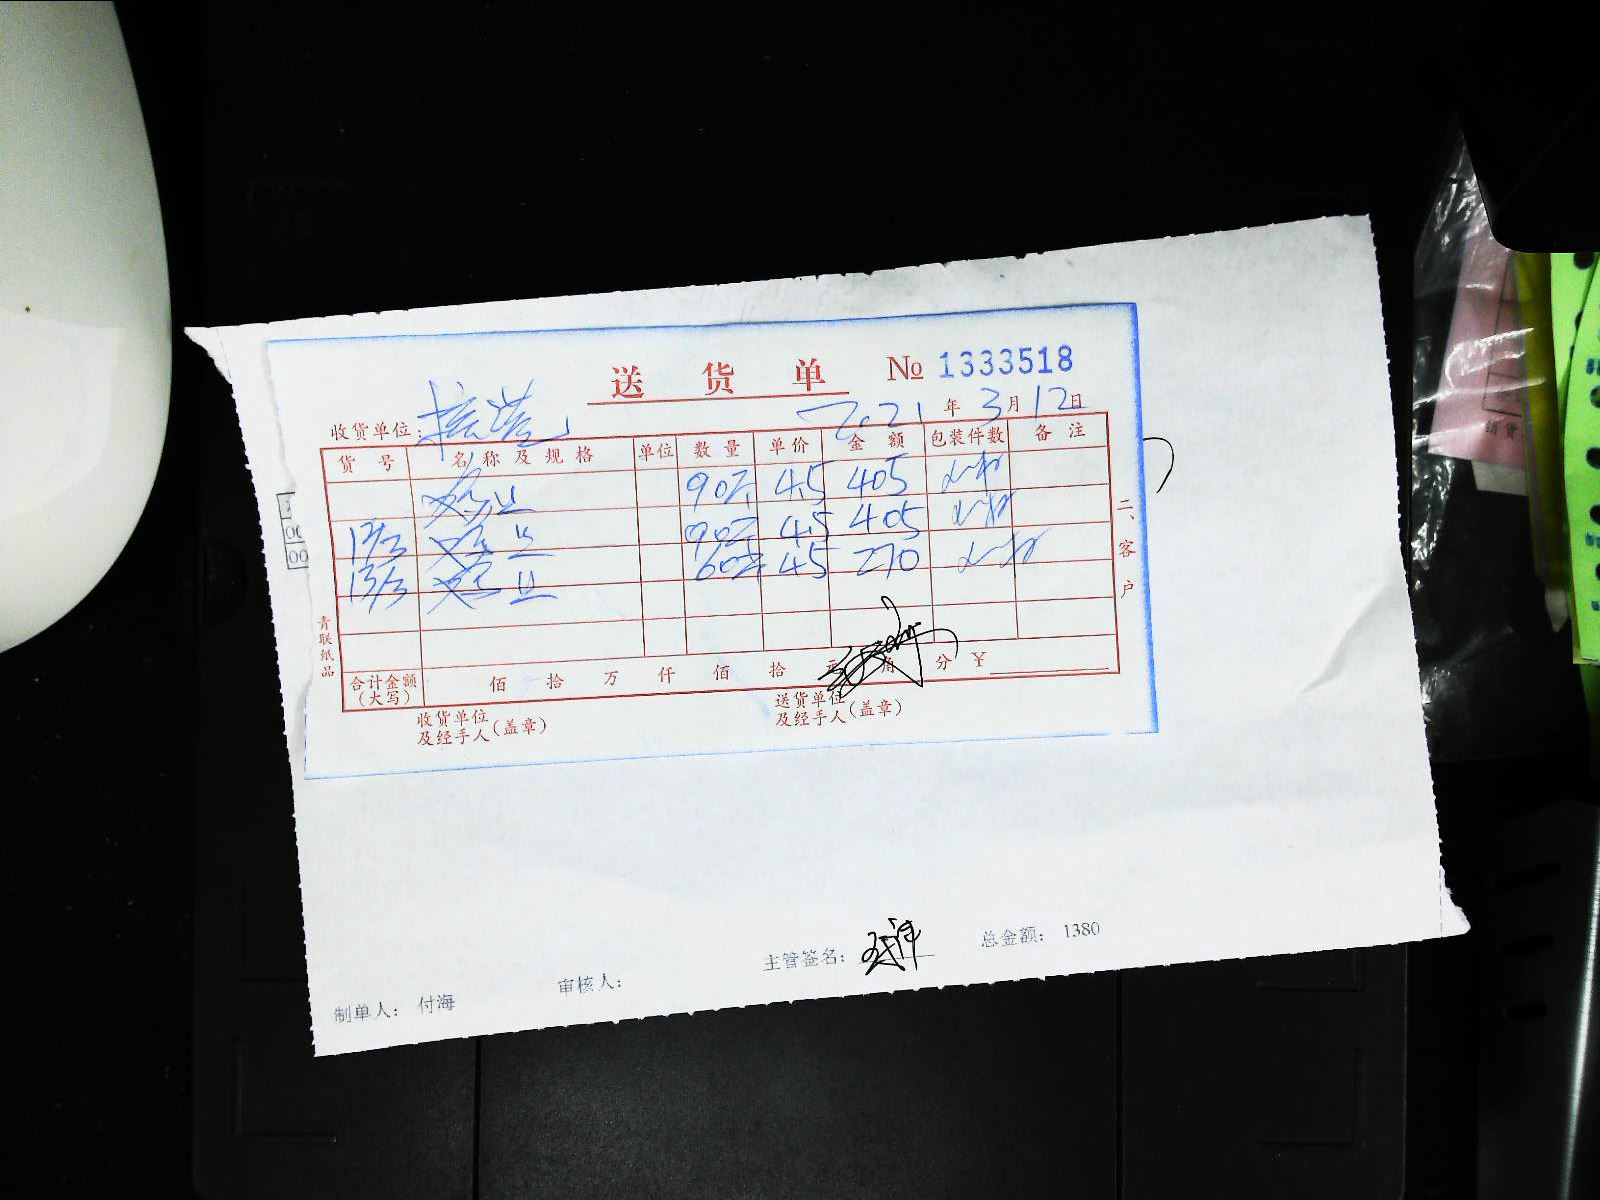 送货单 № 1333518
收货单位: 2021年3月12日
货号 名称及规格 单位 数量 单价 金额 包装件数 备注
90 4.5 405
13/3 90 4.5 405
13/3 60 4.5 270
合计金额（大写） 佰 拾 万 仟 佰 拾 元 角 分 ¥
收货单位及经手人（盖章） 送货单位及经手人（盖章）
青联纸品
二、客户
主管签名： 总金额： 1380
制单人： 付海 审核人：